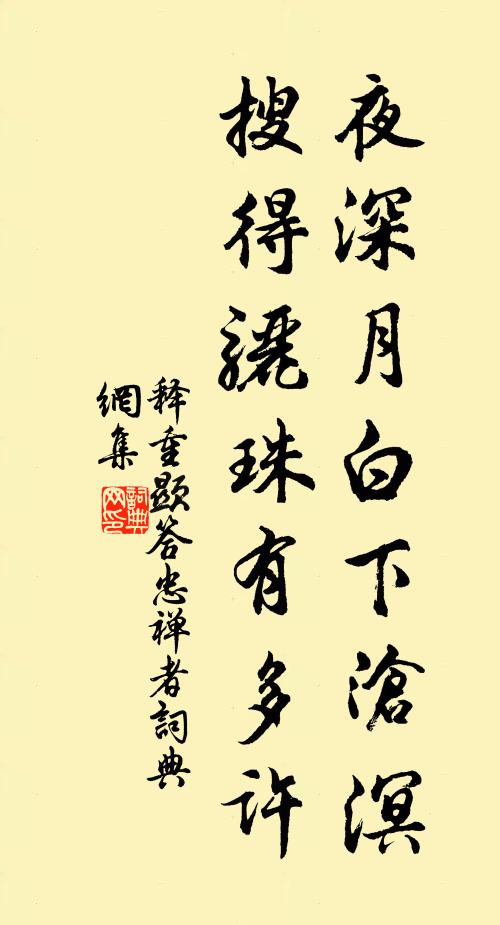 夜深月白下滄溟
搜得驪珠有多許
释重顯答忠禅者詞典
網集
詞典
网印